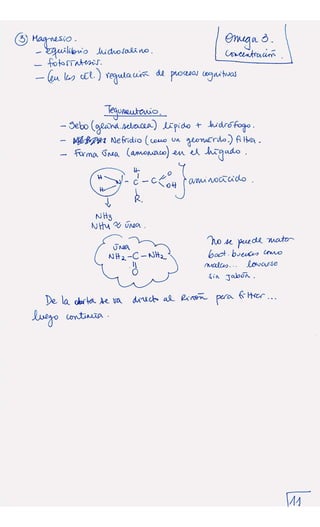 ③ Magnesio.
Omega 3.
Concentración.
- equilibrio hidrosalino.
- fotosíntesis.
- (en las cél.) regulación de procesos cognitivos
Tegumentario.
- Sebo (glánd. sebácea) lípido + hidrófogo.
- Nefridio (como un glomérulo) filtra.
- Forma úrea (amoniaco) en el hígado.
H
H N - C - C O
OH
H
R
aminoácido.
NH3
NH4 ≈ úrea.
úrea
NH2-C-NH2
O
No se puede matar
bact. buenas como
malas... lavarse
sin jabón.
De la aorta se va directo al riñón para filtrar...
luego continúa.
11